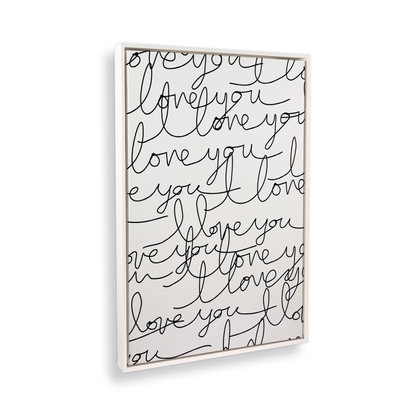 love you I lo
I love you
I love you
love you I
e you I love
I love you
ove you I love yo
I love y
love you I lo
ou